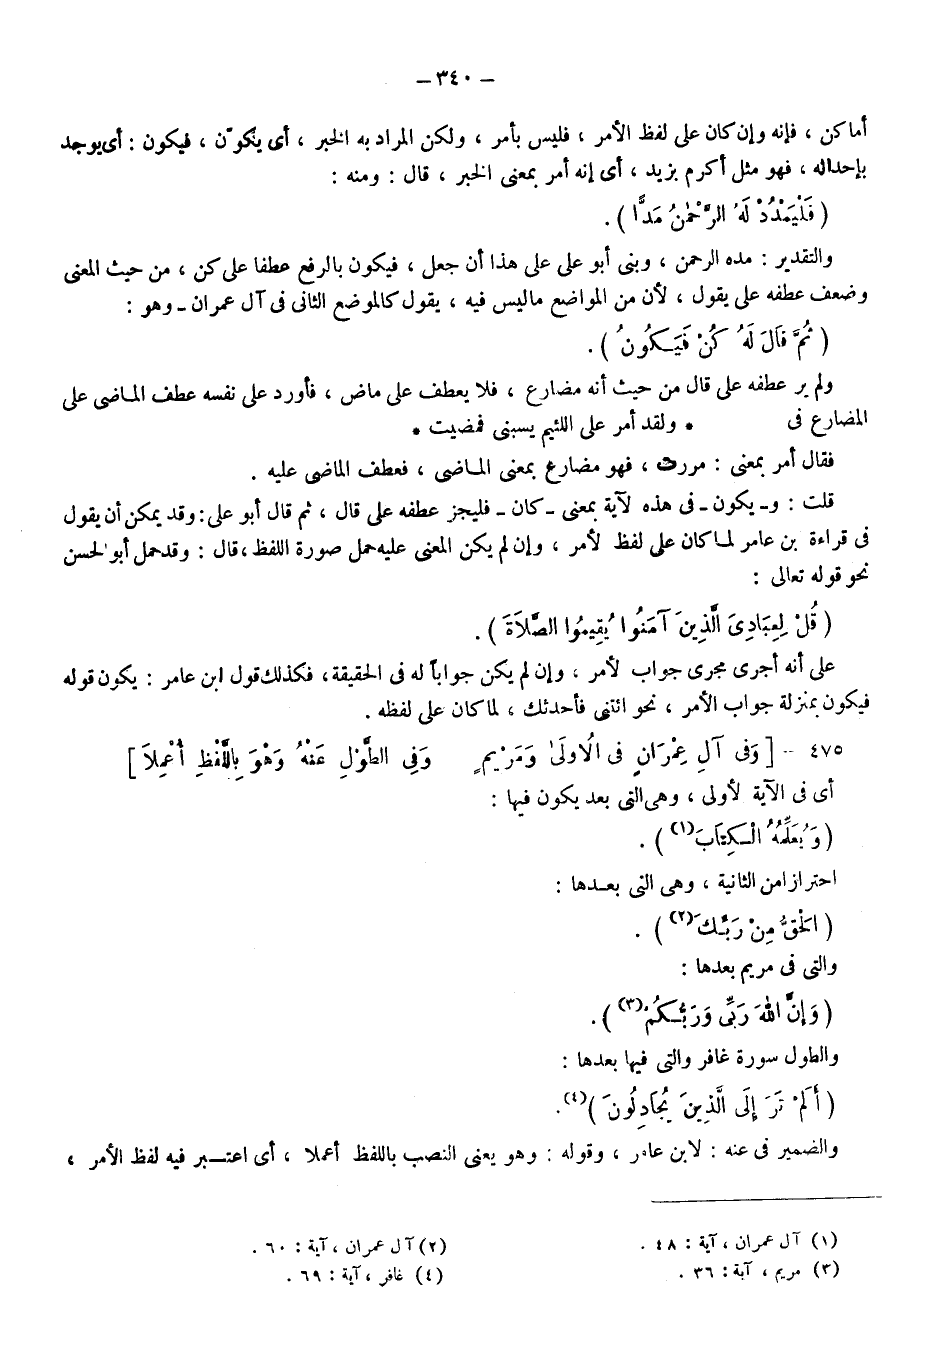 – ٣٤٠ –
أماكن ، فإنه وإن كان على لفظ الأمر ، فليس بأمر ، ولكن المراد به الخبر ، أى يتكوّن ، فيكون : أى يوجد
بإحداثه ، فهو مثل أكرم بزيد ، أى إنه أمر بمعنى الخبر ، قال : ومنه :
( فَلْيَمْدُدْ لَهُ الرَّحْمٰنُ مَدًّا ) .
والتقدير : مده الرحمن ، وبنى أبو على على هذا أن جعل ، فيكون بالرفع عطفا على كن ، من حيث المعنى
وضعف عطفه على يقول ، لأن من المواضع ماليس فيه ، يقول كالموضع الثانى فى آل عمران ـ وهو :
( ثُمَّ قَالَ لَهُ كُنْ فَيَكُونُ ) .
ولم ير عطفه على قال من حيث أنه مضارع ، فلا يعطف على ماض ، فأورد على نفسه عطف الماضى على
المضارع فى * ولقد أمر على اللئيم يسبنى فمضيت *
فقال أمر بمعنى : مررت ، فهو مضارع بمعنى الماضى ، فعطف الماضى عليه .
قلت : و ـ يكون ـ فى هذه لآية بمعنى ـ كان ـ فليجز عطفه على قال ، ثم قال أبو على : وقد يمكن أن يقول
فى قراءة بن عامر لما كان على لفظ لأمر ، وإن لم يكن المعنى عليه حمل صورة اللفظ ، قال : وقد حمل أبو الحسن
نحو قوله تعالى :
( قُلْ لِعِبَادِىَ الَّذِينَ آمَنُوا يُقِيمُوا الصَّلَاةَ ) .
على أنه أجرى مجرى جواب لأمر ، وإن لم يكن جواباً له فى الحقيقة ، فكذلك قول ابن عامر : يكون قوله
فيكون بمنزلة جواب الأمر ، نحو ائتنى فأحدثك ، لما كان على لفظه .
٤٧٥ – [ وَفى آلِ عِمْرَانٍ فى الُاولَىٰ وَمَرْيمٍ وَفِى الطَّوْلِ عَنْهُ وَهْوَ بِاللَّفْظِ أُعْمِلَا ]
أى فى الآية لأولى ، وهى التى بعد يكون فيها :
( وَيُعَلِّمُهُ الْكِتَابَ (١) ) .
احترازا من الثانية ، وهى التى بعدها :
( الْحَقُّ مِنْ رَبِّكَ (٢) ) .
والتى فى مريم بعدها :
( وَإِنَّ اللهَ رَبِّى وَرَبُّكُمْ (٣) ) .
والطول سورة غافر والتى فيها بعدها :
( أَلَمْ تَرَ إِلَى الَّذِينَ يُجَادِلُونَ ) (٤) .
والضمير فى عنه : لابن عامر ، وقوله : وهو يعنى النصب باللفظ أعملا ، أى اعتبر فيه لفظ الأمر ،
(١) آل عمران ، آية : ٤٨ . (٢) آل عمران ، آية : ٦٠ .
(٣) مريم ، آية : ٣٦ . (٤) غافر ، آية : ٦٩ .